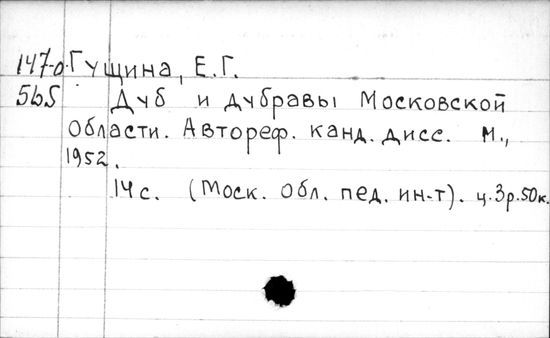 147-о. Гущина, Е.Г.
565 Дуб и дубравы Московской
области. Автореф. канд. дисс. М.,
1952.
14 с. (Моск. обл. пед. ин-т). ц.3р.50к.